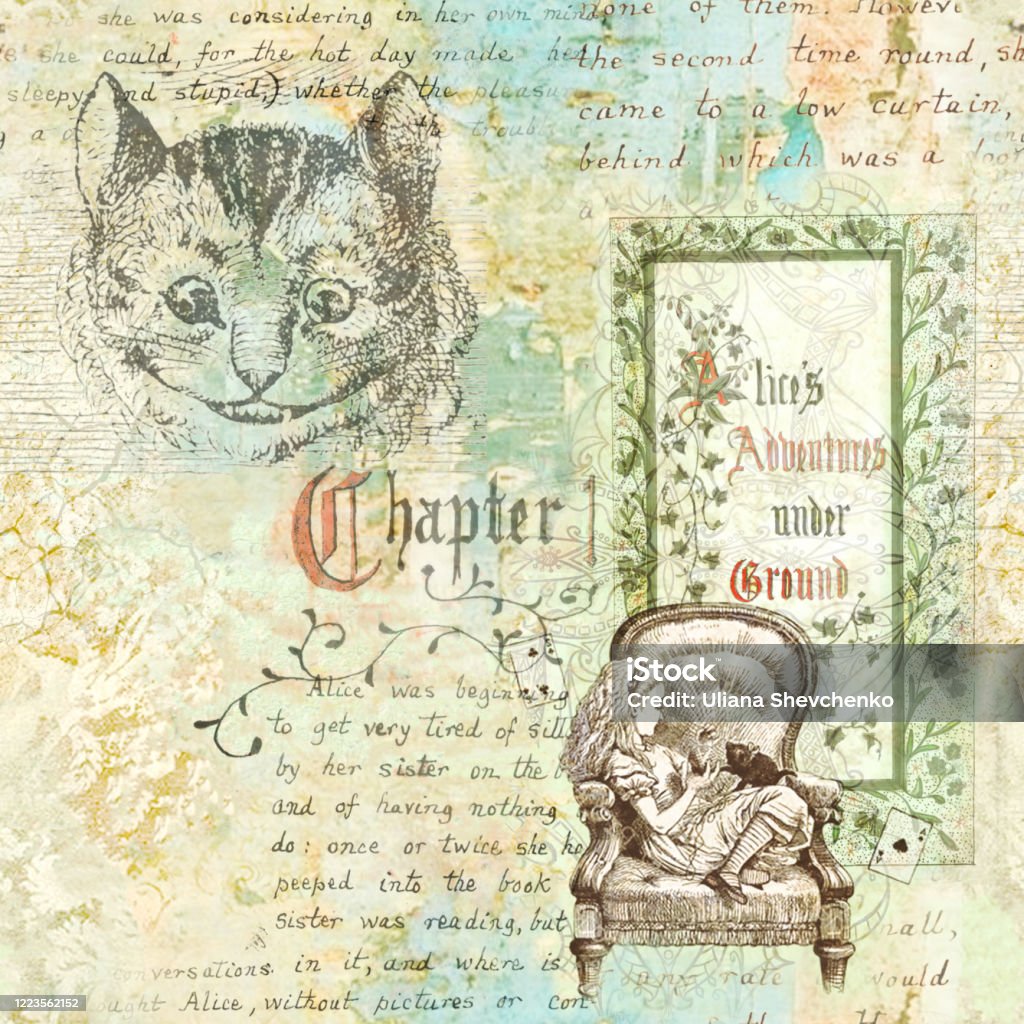 she was considering in her own mind
she could, for the hot day made her
sleepy and stupid,) whether the pleasure
the trouble
none of them. However
the second time round, sh
came to a low curtain,
behind which was a door
Alice's
Adventures
under
Ground.
Chapter 1
iStock
Credit: Uliana Shevchenko
Alice was beginning
to get very tired of sitt
by her sister on the b
and of having nothing
do: once or twice she ha
peeped into the book
sister was reading, but
conversations in it, and where is
ought Alice, without pictures or con-
nall,
any rate would
1223562152